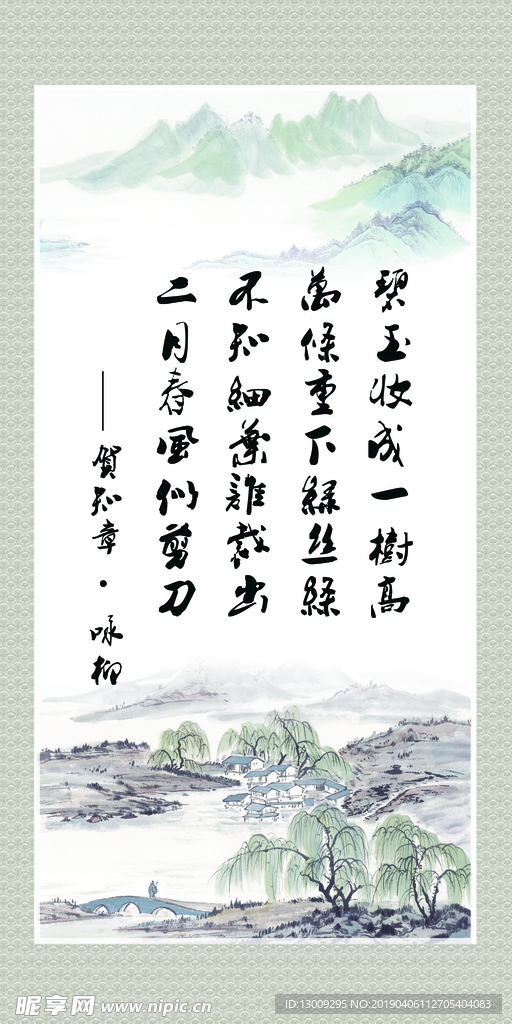 碧玉妝成一樹高
萬條垂下綠丝絛
不知細葉誰裁出
二月春風似剪刀
——賀知章·咏柳
昵享网 www.nipic.cn
ID:13009295 NO:20190406112705404083